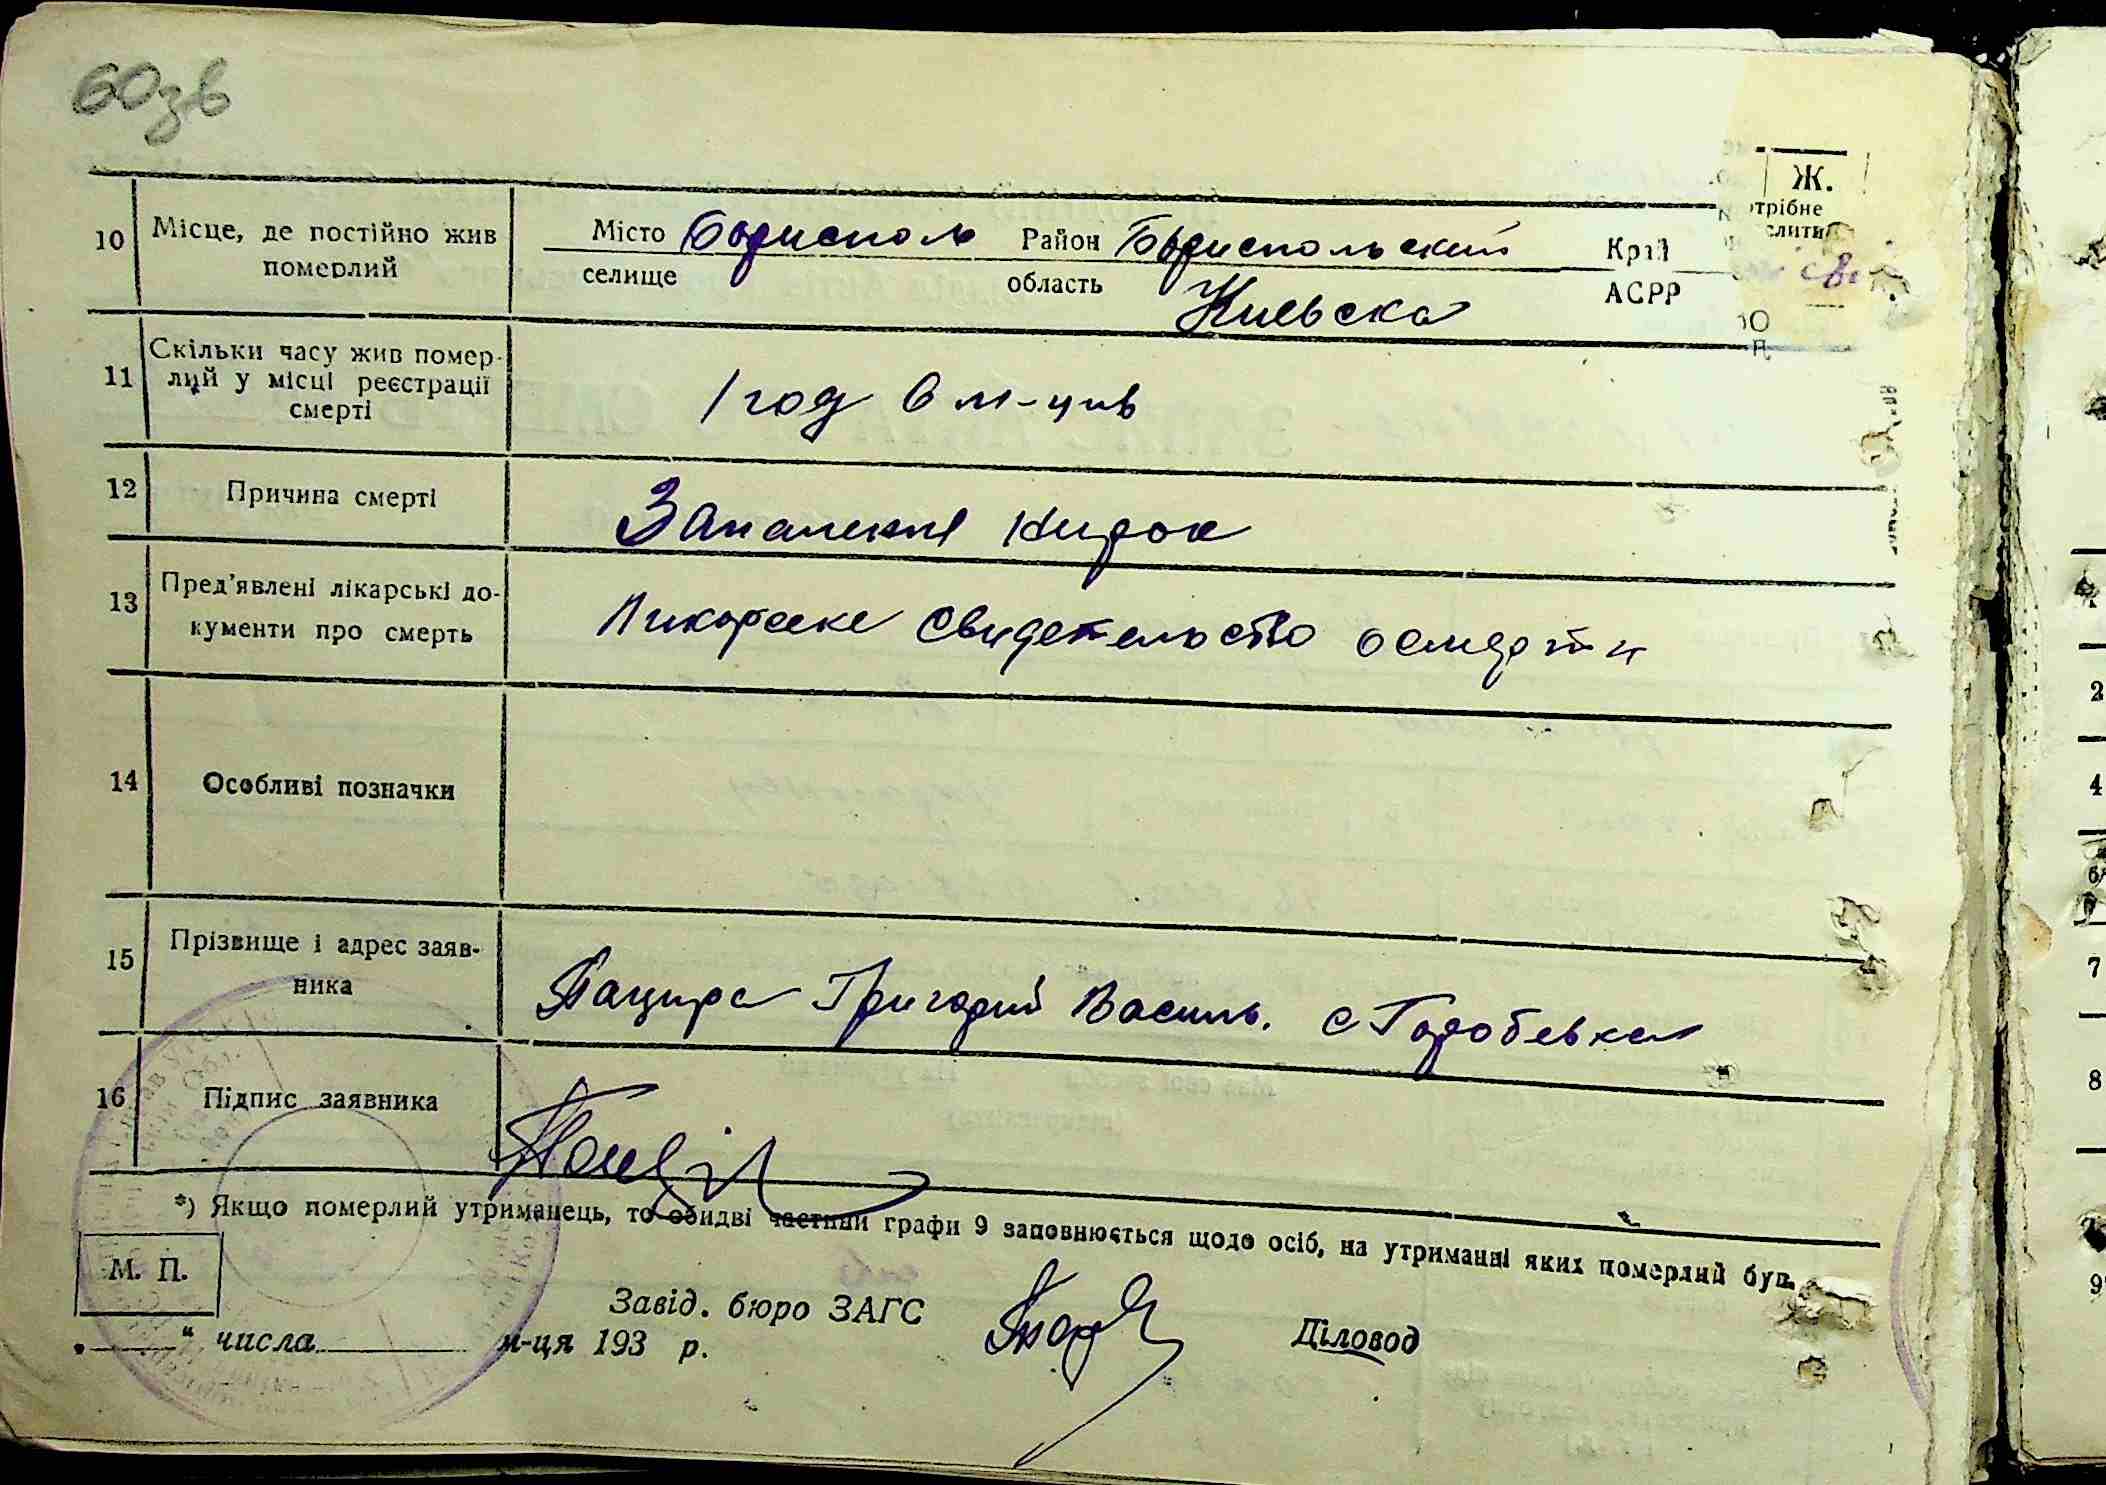 60зв
Ж.
отрібне
слити
10 Місце, де постійно жив Місто Бориспол Район Бориспольский Край
померлий селище область Киевска АСРР
11 Скільки часу жив помер-
лий у місці реєстрації 1 год 6 м-цив
смерті
12 Причина смерті Запалення нирок
13 Пред'явлені лікарські до-
кументи про смерть Ликарске свидетельство осмерти
14 Особливі позначки
15 Прізвище і адрес заяв-
ника Пацира Григорий Василь. с Горобевка
16 Підпис заявника
*) Якщо померлий утриманець, то обидві частини графи 9 заповнюється щодо осіб, на утриманні яких померлий був.
М. П.
Завід. бюро ЗАГС Діловод
„ " числа м-ця 193 р.
2
4
7
8
9